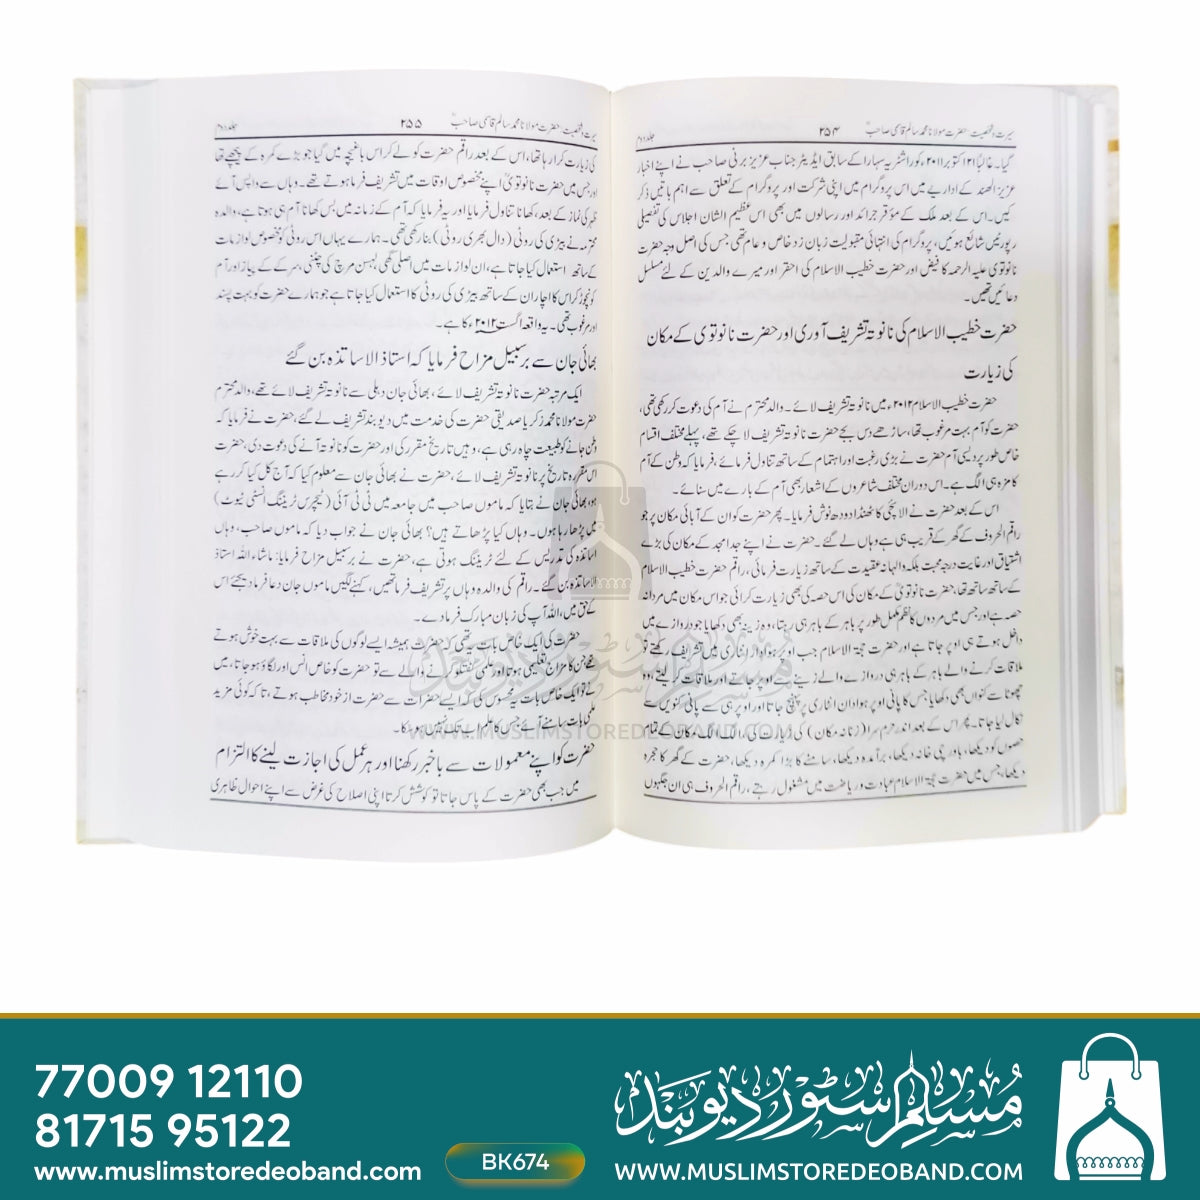 سیرت و شخصیت حضرت مولانا محمد سالم قاسمی صاحبؒ ۲۵۴ جلد دوم
گیا۔ غالباً ۱۲ اکتوبر ۲۰۱۱ء کو راشٹریہ سہارا کے سابق ایڈیٹر جناب عزیز برنی صاحب نے اپنے اخبار
عزیز الہند کے اداریے میں اس پروگرام میں اپنی شرکت اور پروگرام کے تعلق سے اہم باتیں ذکر
کیں۔ اس کے بعد ملک کے مؤقر جرائد اور رسالوں میں بھی اس عظیم الشان اجلاس کی تفصیلی
رپورٹیں شائع ہوئیں، پروگرام کی انتہائی مقبولیت زبان زد خاص و عام تھی جس کی اصل وجہ حضرت
نانوتوی علیہ الرحمہ کا فیض اور حضرت خطیب الاسلام کی احقر اور میرے والدین کے لئے مسلسل
دعائیں تھیں۔
حضرت خطیب الاسلام کی نانوتہ تشریف آوری اور حضرت نانوتوی کے مکان
کی زیارت
حضرت خطیب الاسلام ۲۰۱۲ء میں نانوتہ تشریف لائے۔ والد محترم نے آم کی دعوت کر رکھی تھی،
حضرت کو آم بہت مرغوب تھا، ساڑھے دس بجے حضرت نانوتہ تشریف لا چکے تھے، پہلے مختلف اقسام
خاص طور پر دیسی آم حضرت نے بڑی رغبت اور اہتمام کے ساتھ تناول فرمائے، فرمایا کہ وطن کے آم
کا مزہ ہی الگ ہے۔ اس دوران مختلف شاعروں کے اشعار بھی آم کے بارے میں سنائے۔
اس کے بعد حضرت نے الائچی کا ٹھنڈا دودھ نوش فرمایا۔ پھر حضرت کو ان کے آبائی مکان پر جو
راقم الحروف کے گھر کے قریب ہی ہے وہاں لے گئے۔ حضرت نے اپنے جد امجد کے مکان کی بڑے
اشتیاق اور غایت درجہ محبت بلکہ والہانہ عقیدت کے ساتھ زیارت فرمائی، راقم حضرت خطیب الاسلام
کے ساتھ ساتھ تھا، حضرت نانوتویؒ کے مکان کی اس حصہ کی بھی زیارت کرائی جو اس مکان میں مردانہ
حصہ ہے اور جس میں مردوں کا نظم مکمل طور پر باہر کے باہر ہی رہتا، وہ زینہ بھی دکھایا جو دروازے میں
داخل ہوتے ہی اوپر جاتا ہے اور حضرت حجۃ الاسلام جب اوپر ہوادار اٹاری میں تشریف رکھتے تو
ملاقات کرنے والے باہر کے باہر ہی دروازے والے زینے سے اوپر جاتے اور ملاقات کر لیتے، وہ
چھوٹا سے کنواں بھی دکھایا جس کا پانی اوپر ہوادان اٹاری پر پہنچ جاتا اور اوپر ہی سے پانی کنویں سے
نکال لیا جاتا۔ پھر اس کے بعد اندر حرم سرا (زنانہ مکان) کی زیارت کی، الگ الگ مکان کے تمام
حصوں کو دیکھا، باورچی خانہ دیکھا، برآمدہ دیکھا، سامنے کا بڑا کمرہ دیکھا، حضرت کے گھر کا حجرہ
دیکھا، جس میں حضرت حجۃ الاسلام عبادت و ریاضت میں مشغول رہتے، راقم الحروف ہی ان جگہوں
سیرت و شخصیت حضرت مولانا محمد سالم قاسمی صاحبؒ ۲۵۵ جلد دوم
کی زیارت کرا رہا تھا، اس کے بعد راقم حضرت کو لے کر اس باغیچہ میں گیا جو بڑے کمرہ کے پیچھے تھا
اور جس میں حضرت نانوتویؒ اپنے مخصوص اوقات میں تشریف فرما ہوتے تھے۔ وہاں سے واپس آئے
ظہر کی نماز کے بعد، کھانا تناول فرمایا اور یہ فرمایا کہ آم کے زمانہ میں بس کھانا آم ہی ہوتا ہے، والدہ
محترمہ نے بیڑی کی روٹی (دال بھری روٹی) بنا رکھی تھی۔ ہمارے یہاں اس روٹی کو مخصوص لوازمات
کے ساتھ استعمال کیا جاتا ہے، ان لوازمات میں اصلی گھی، لہسن مرچ کی چٹنی، سرکے کے پیاز اور آم
کو نچوڑ کر اس کا اچار ان کے ساتھ بیڑی کی روٹی کا استعمال کیا جاتا ہے جو ہمارے حضرت کو بہت پسند
اور مرغوب تھی۔ یہ واقعہ اگست ۲۰۱۲ء کا ہے۔
بھائی جان سے برسبیل مزاح فرمایا کہ استاذ الاساتذہ بن گئے
ایک مرتبہ حضرت نانوتہ تشریف لائے، بھائی جان دہلی سے نانوتہ تشریف لائے تھے، والد محترم
حضرت مولانا محمد زکریا صدیقی حضرت کی خدمت میں دیوبند تشریف لے گئے، حضرت نے فرمایا کہ
وطن جانے کو طبیعت چاہ رہی ہے، وہیں تاریخ مقرر کی اور حضرت کو نانوتہ آنے کی دعوت دی، حضرت
اس مقررہ تاریخ پر نانوتہ تشریف لائے، حضرت نے بھائی جان سے معلوم کیا کہ آج کل کیا کر رہے
ہو، بھائی جان نے بتایا کہ ماموں صاحب میں جامعہ میں ٹی ٹی آئی (ٹیچرس ٹریننگ انسٹی ٹیوٹ)
میں پڑھا رہا ہوں۔ وہاں کیا پڑھاتے ہیں؟ بھائی جان نے جواب دیا کہ ماموں صاحب، وہاں
اساتذہ کی تدریس کے لئے ٹریننگ ہوتی ہے، حضرت نے برسبیل مزاح فرمایا: ماشاء اللہ استاذ
الاساتذہ بن گئے۔ راقم کی والدہ وہاں پر تشریف فرما تھیں، کہنے لگیں ماموں جان دعا فرما دیجئے اس
کے حق میں، اللہ آپ کی زبان مبارک فرما دے۔
حضرت کی ایک خاص بات یہ تھی کہ حضرت ہمیشہ ایسے لوگوں کی ملاقات سے بہت خوش ہوتے
تھے جن کا مزاج تعلیمی ہوتا اور علمی گفتگو کرنے والے سے تو حضرت کو خاص انس اور لگاؤ ہو جاتا، میں
نے تو ایک خاص بات یہ محسوس کی کہ ایسے حضرات سے حضرت از خود مخاطب ہوتے، تاکہ کوئی مزید
علمی بات سامنے آئے جس کا علم اب تک نہیں ہو سکا۔
حضرت کو اپنے معمولات سے باخبر رکھنا اور ہر عمل کی اجازت لینے کا التزام
میں جب بھی حضرت کے پاس جاتا تو کوشش کرتا اپنی اصلاح کی غرض سے اپنے احوال ظاہری
مسلم سٹور دیوبند
WWW.MUSLIMSTOREDEOBAND.COM
77009 12110
81715 95122
www.muslimstoredeoband.com
BK674
مسلم سٹور دیوبند
WWW.MUSLIMSTOREDEOBAND.COM